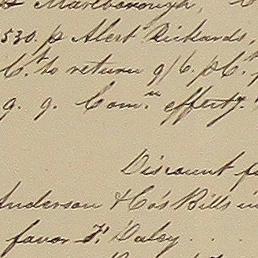 p Marlborough,
530. p Alert Rickards,
Ct. to return g/c. p Ct.
g. g. Comn. effects.
Discount
Anderson & Co's Bills in
favor F. Daley . . .